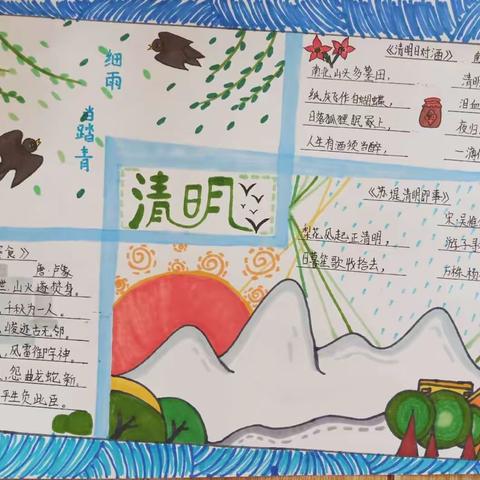 细雨
当踏青
清明
《清明日对酒》
南北山头多墓田，
清明
纸灰飞作白蝴蝶，
泪血
日落狐狸眠冢上，
夜归
人生有酒须当醉，
一滴何
《苏堤清明即事》
宋 吴惟
梨花风起正清明，
游子寻
日暮笙歌收拾去，
万株杨
食》
唐 卢象
世，山火遂焚身。
，千秋为一人。
，岭邃迥无邻。
，风雷催阵神。
，怨曲龙蛇新。
平生负此臣。